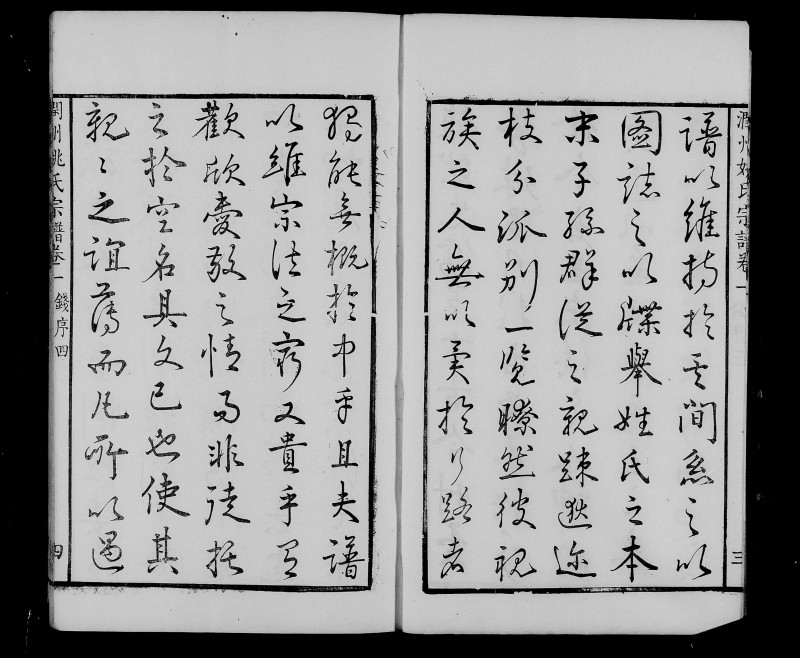 潤州姚氏宗譜卷一
三
譜以維持於其間系之以
圖誌之以牒舉姓氏之本
末子孫群從之親踈逖邇
枝分派別一覽瞭然彼視
族之人無以異於行路者
獨能無概於中乎且夫譜
以維宗法之窮又貴乎有
歡欣愛敬之情而非徒託
之於空名具文已也使其
親親之誼薄而凡所以遇
潤州姚氏宗譜卷一 錢序四
四